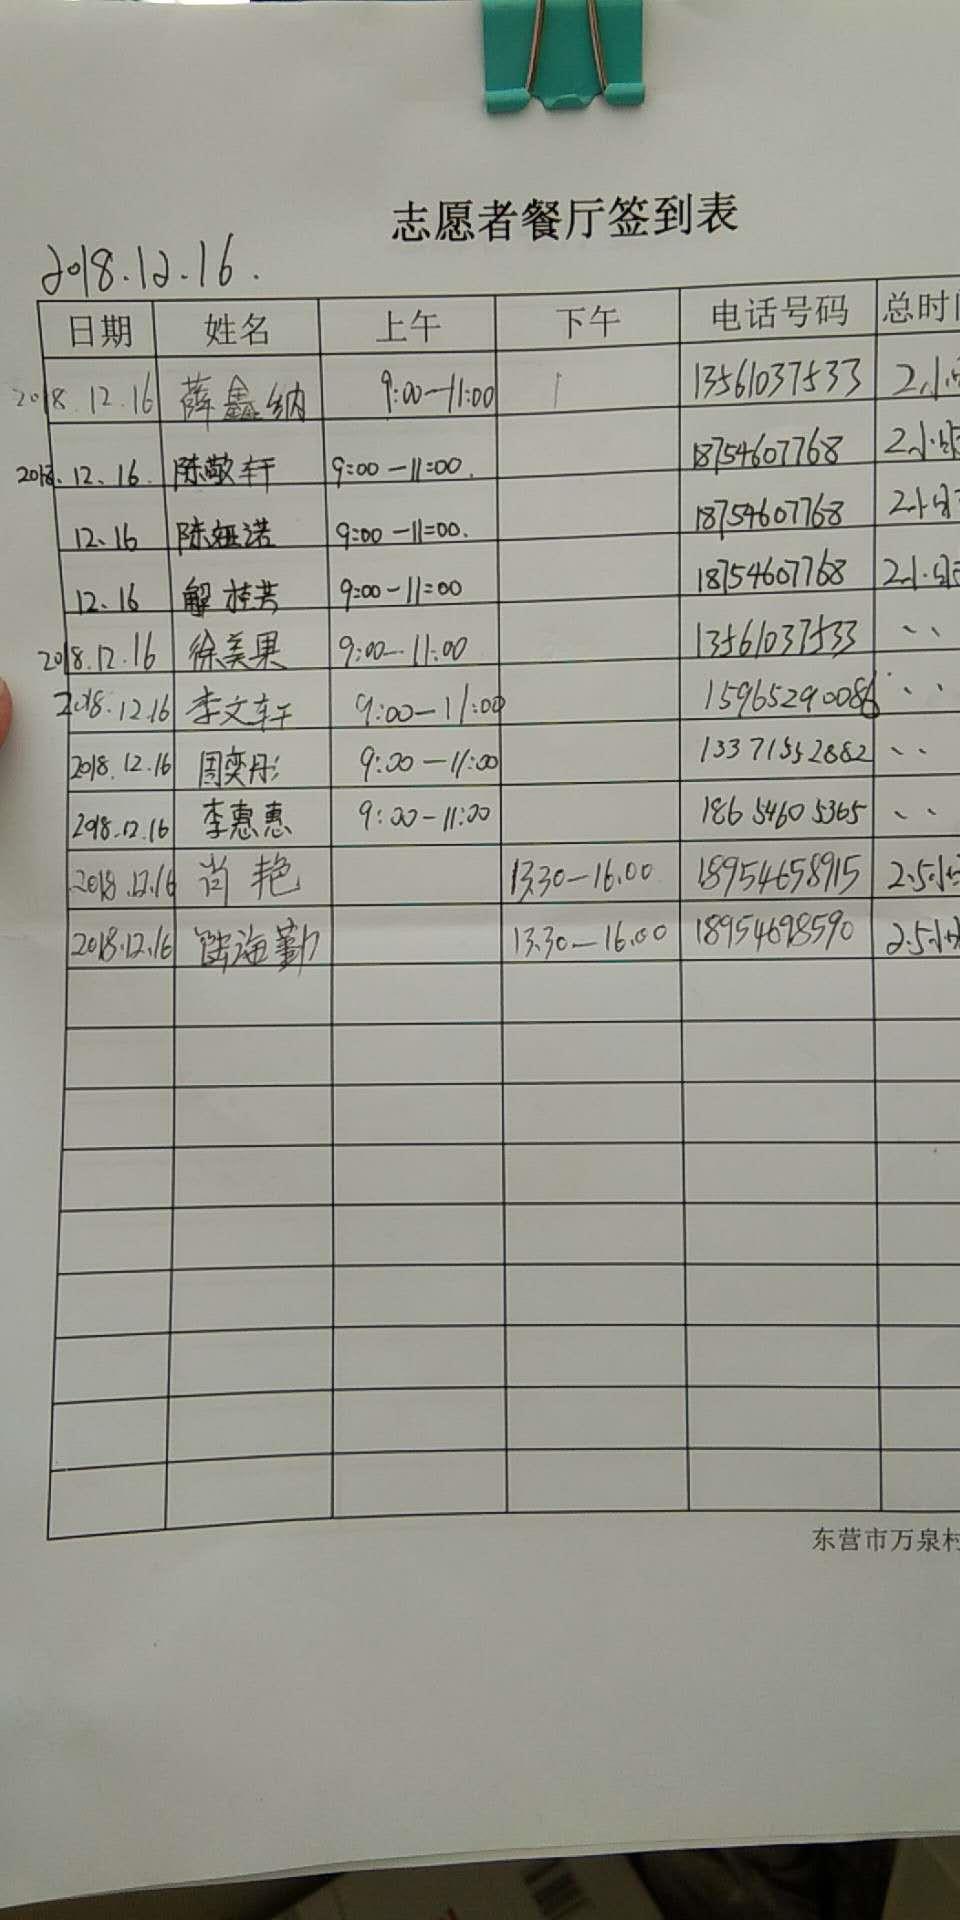 志愿者餐厅签到表
2018.12.16.
日期 姓名 上午 下午 电话号码 总时间
2018.12.16 薛鑫纳 9:00-11:00 13561037533 2小时
2018.12.16. 陈敬轩 9:00-11:00. 18754607768 2小时
12.16 陈妞诺 9:00-11:00. 18754607768 2小时
12.16 解桂芳 9:00-11:00 18754607768 2小时
2018.12.16 徐美果 9:00-11:00 13561037533 、、
2018.12.16 李文轩 9:00-11:00 15965290086 、、
2018.12.16 周奕彤 9:00-11:00 13371552882 、、
2018.12.16 李惠惠 9:00-11:00 18654605365 、、
2018.12.16 尚艳 13.30-16.00 18954658915 2.5小时
2018.12.16 海勤 13.30-16.00 18954698590 2.5小时
东营市万泉村